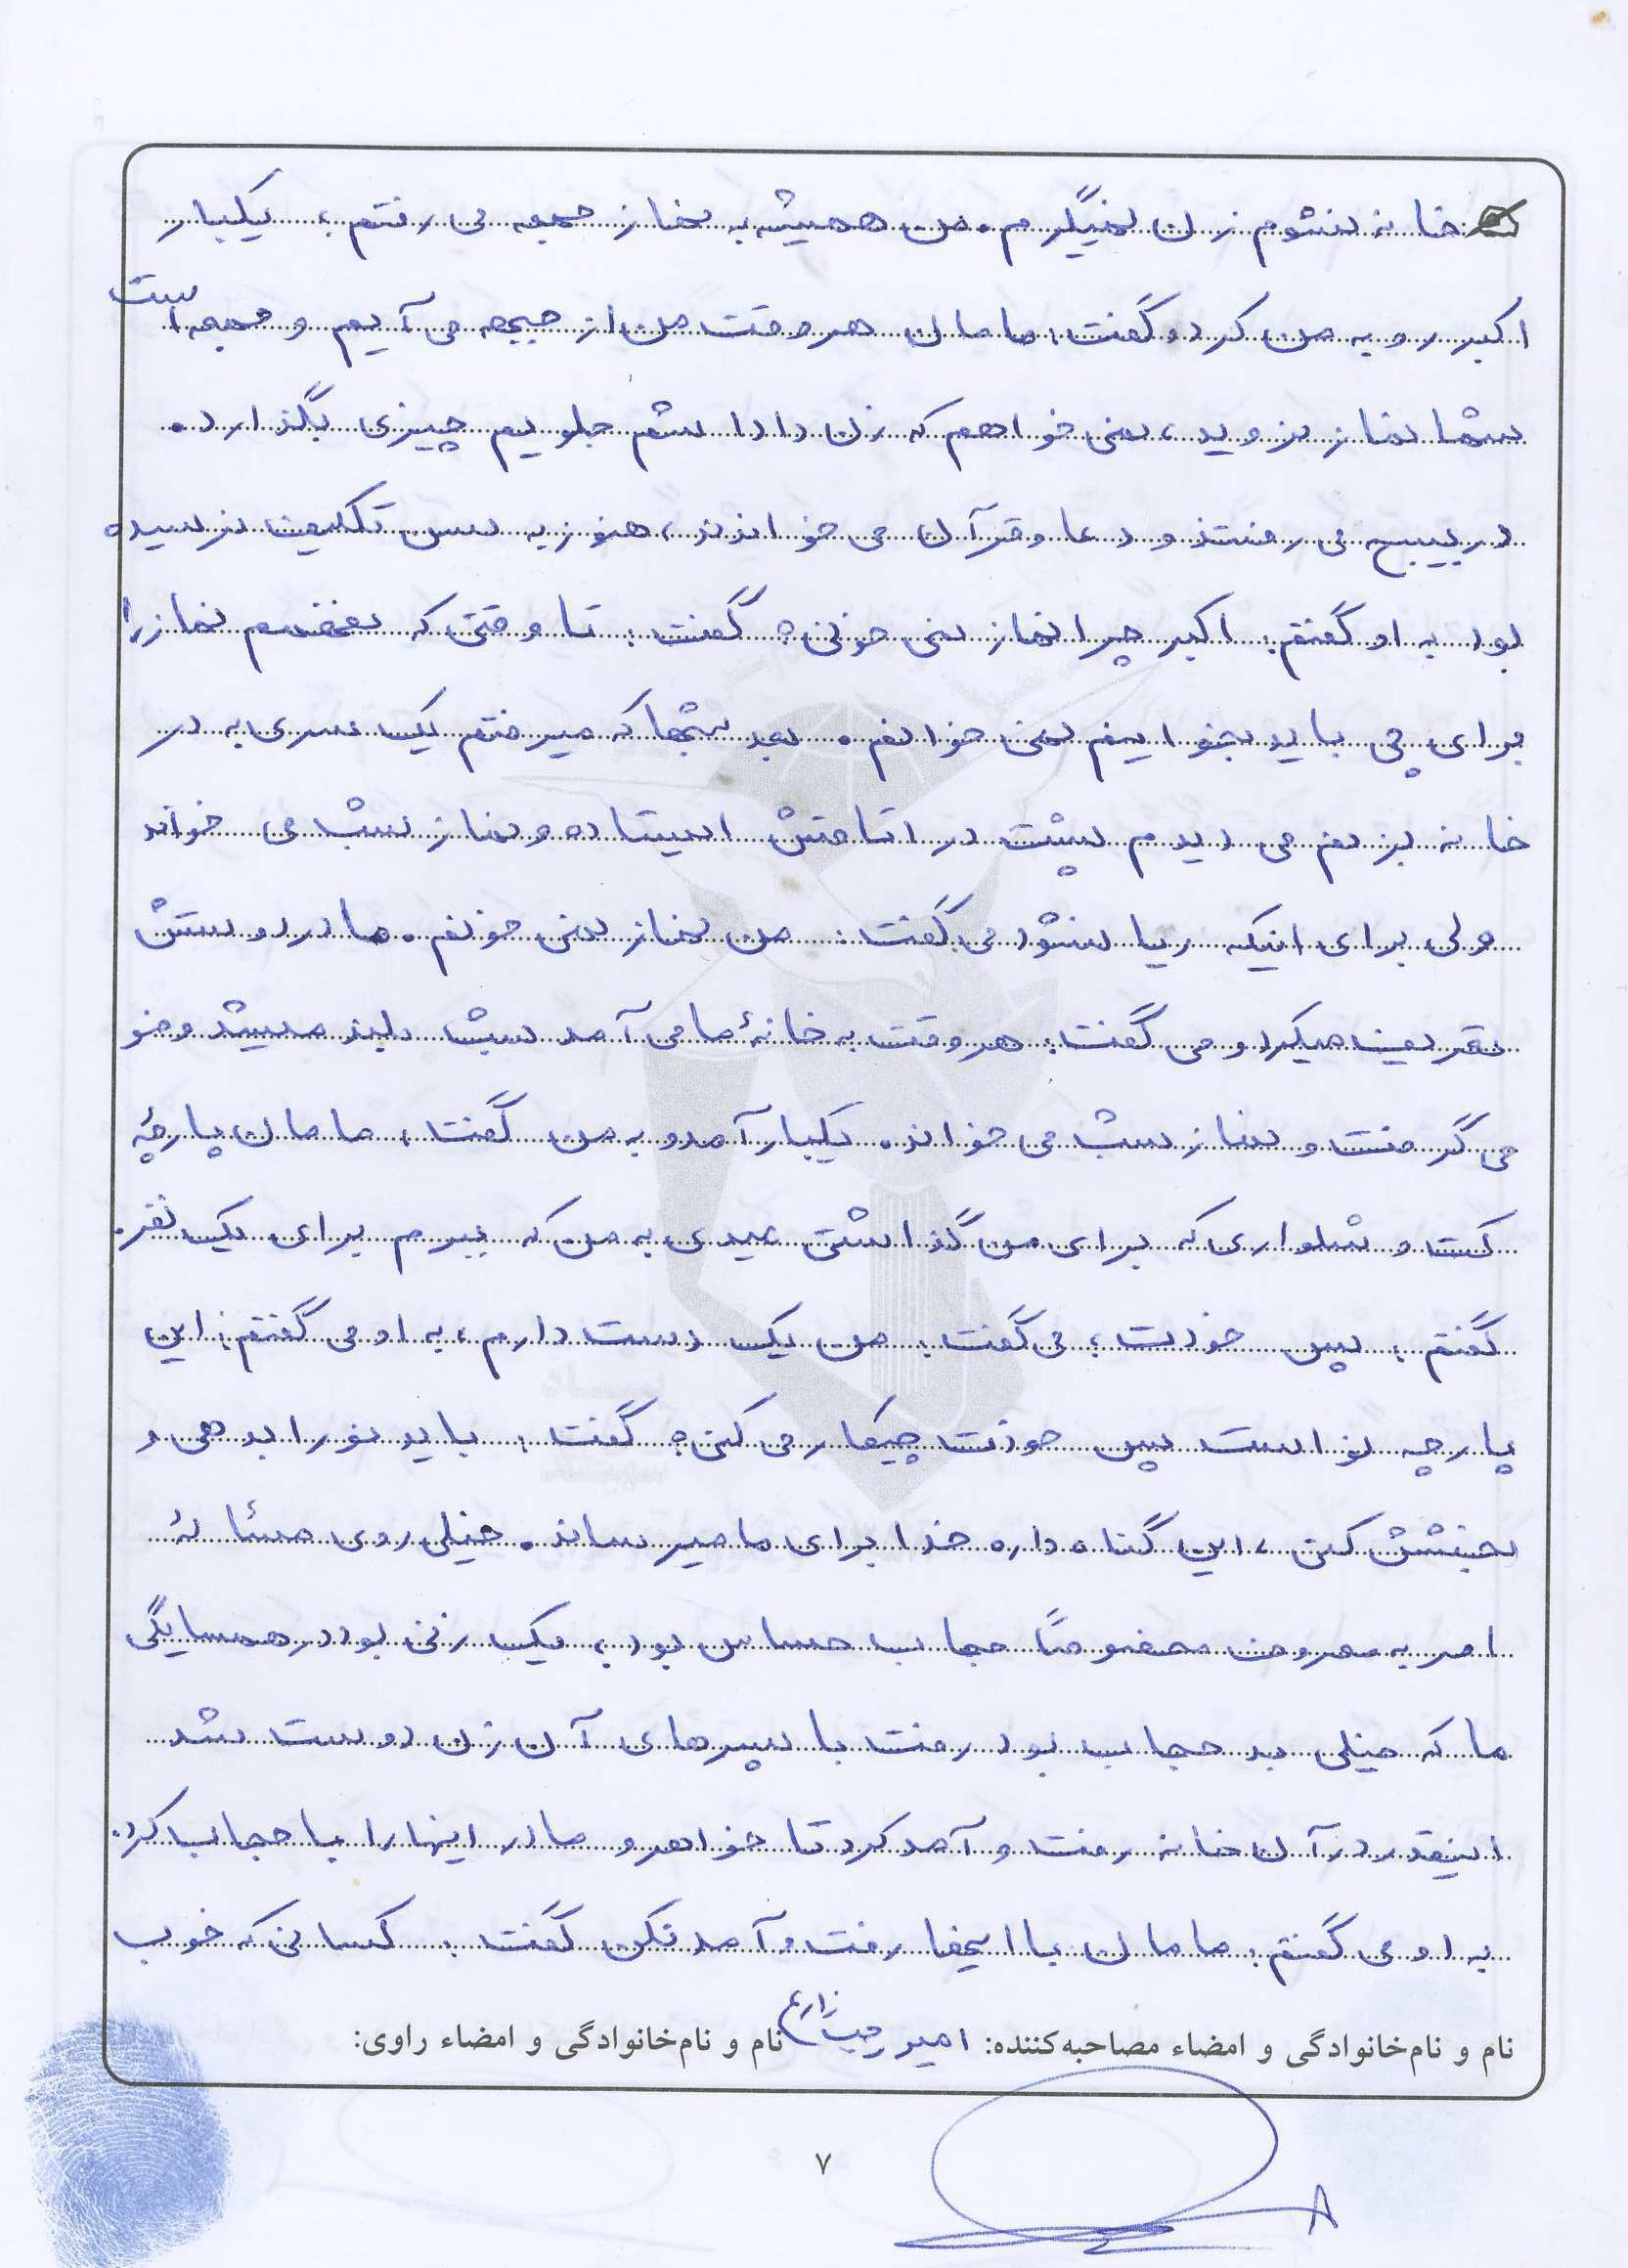 خانه نشوم زن نمیگیرم. من همیشه به نماز جمعه می رفتم، یکبار
اکبر رو به من کرد و گفت: مامان هر وقت من از جبهه می آیم و جمعه است
شما نماز نروید، نمی خواهم که زن داداشم جلویم چیزی بگذارد.
در بسیج می رفتند و دعا و قرآن می خواندند، هنوز به سن تکلیف نرسیده
بود به او گفتم: اکبر چرا نماز نمی خونی؟ گفت: تا وقتی که نفهمم نماز را
برای چی باید بخوانیم نمی خوانم. بعد شبها که میرفتم یک سری به در
خانه بزنم می دیدم پشت در اتاقش ایستاده و نماز شب می خواند
ولی برای اینکه ریا نشود می گفت: من نماز نمی خونم. مادر دوستش
تعریف میکرد و می گفت: هر وقت به خانهٔ ما می آمد شب بلند میشد وضو
می گرفت و نماز شب می خواند. یکبار آمد و به من گفت: مامان پارچهٔ
کت و شلواری که برای من گذاشتی عیدی به من که ببرم برای یک نفر.
گفتم: پس خودت؛ می گفت: من یک دست دارم، به او می گفتم: این
پارچه نو است پس خودت چیکار می کنی؟ گفت: باید نو را بدهی و
بخشش کنی، این گناه داره خدا برای ما میرساند. خیلی روی مسئالهٔ
امر به معروف مخصوصاً حجاب حساس بود، یک زنی بود در همسایگی
ما که خیلی بد حجاب بود رفت با پسرهای آن زن دوست شد
اینقدر در آن خانه رفت و آمد کرد تا خواهر و مادر اینها را با حجاب کرد.
به او می گفتم: مامان با اینها رفت و آمد نکن گفت: کسانی که خوب
نام و نام‌خانوادگی و امضاء مصاحبه‌کننده: امیر زارع نام و نام‌خانوادگی و امضاء راوی:
۷